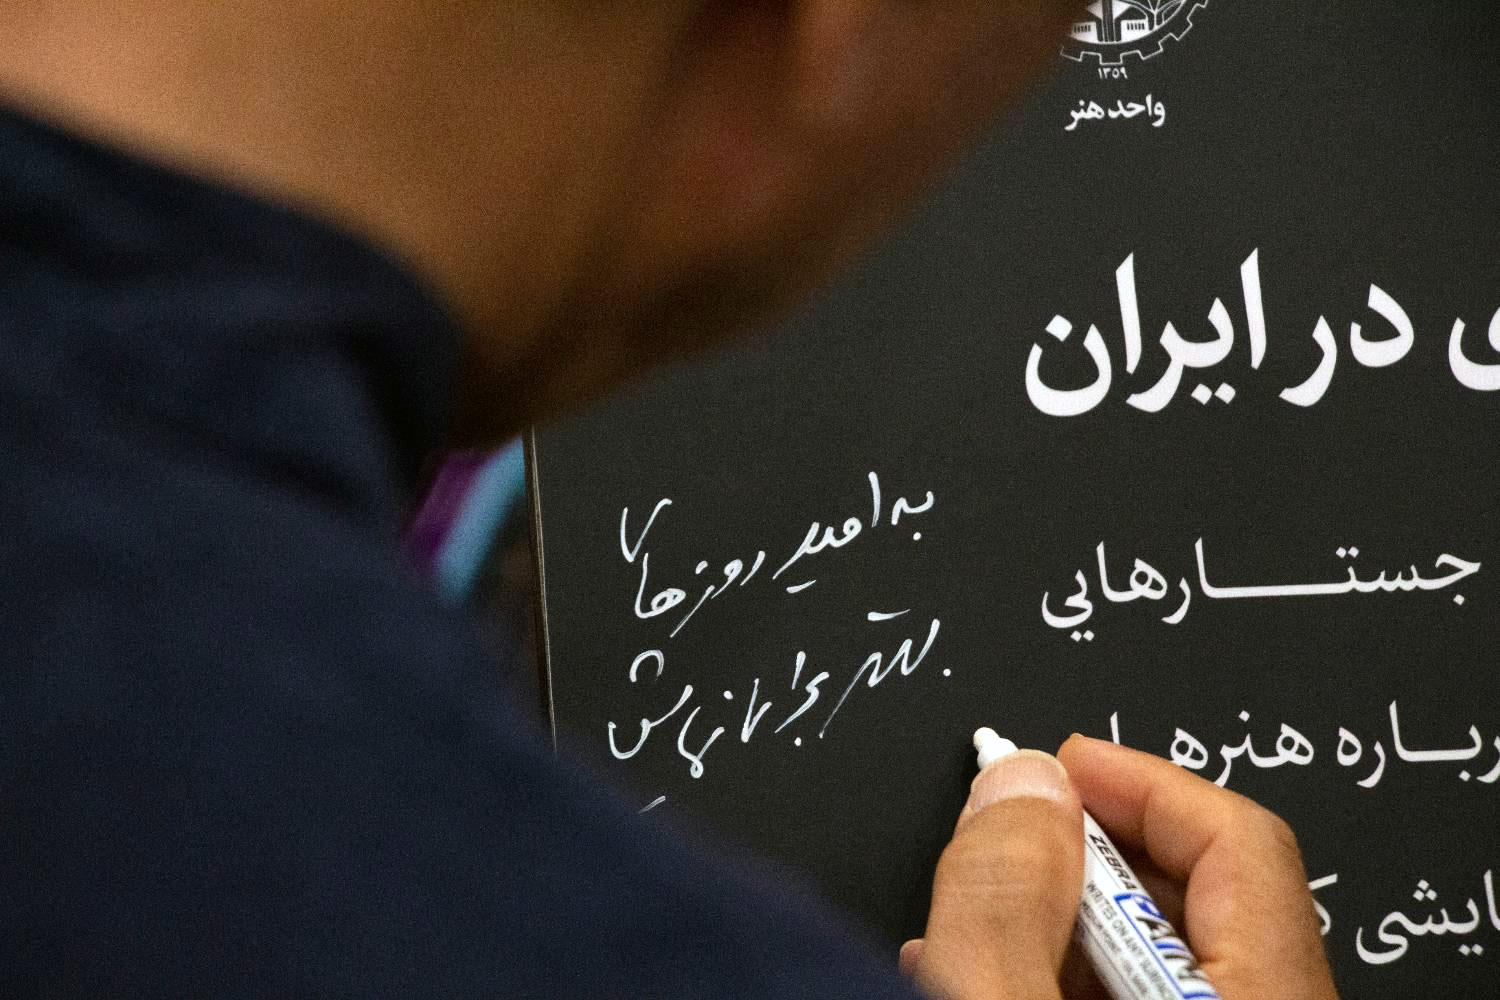 ۱۳۵۹
واحد هنر
ی در ایران
جستـــارهایی
ربـاره هنرهـا
ایشی ک
به امید روزهای
بهتر برای نمایش
ZEBRA
PAINT
WRITES ON ANY SURFACE